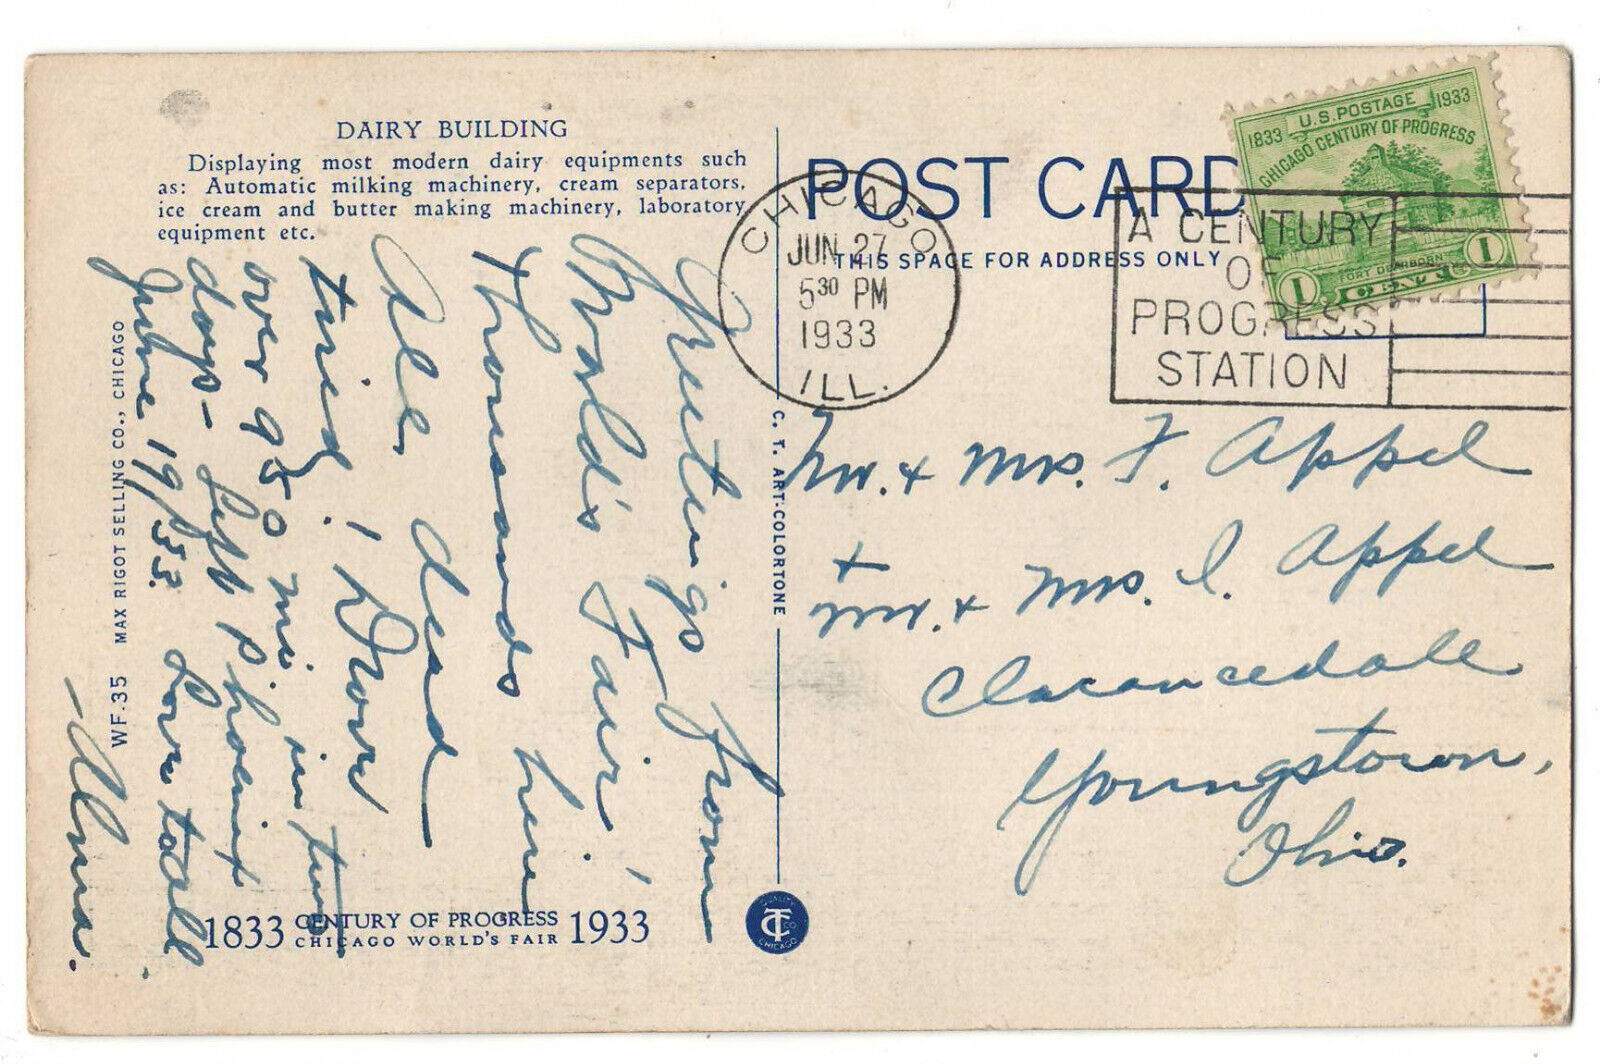 DAIRY BUILDING
Displaying most modern dairy equipments such
as: Automatic milking machinery, cream separators,
ice cream and butter making machinery, laboratory
equipment etc.
Greetings from
World's Fair!
Thousands here
All dead
tired. I Drove
over 950 mi in two
days – Left Phoenix
June 19/33. Love to all.
– Alma.
WF.35 MAX RIGOT SELLING CO., CHICAGO
1833 CENTURY OF PROGRESS 1933
CHICAGO WORLD'S FAIR
C. T. ART-COLORTONE
QUALITY
CT CO
CHICAGO
POST CARD
THIS SPACE FOR ADDRESS ONLY
CHICAGO
JUN 27
5 30 PM
1933
ILL.
A CENTURY
OF
PROGRESS
STATION
U.S. POSTAGE
1833 1933
CHICAGO CENTURY OF PROGRESS
FORT DEARBORN
1 CENT 1
Mr. & Mrs. F. Appel
+
Mr. & Mrs. I. Appel
Youngstown,
Ohio.